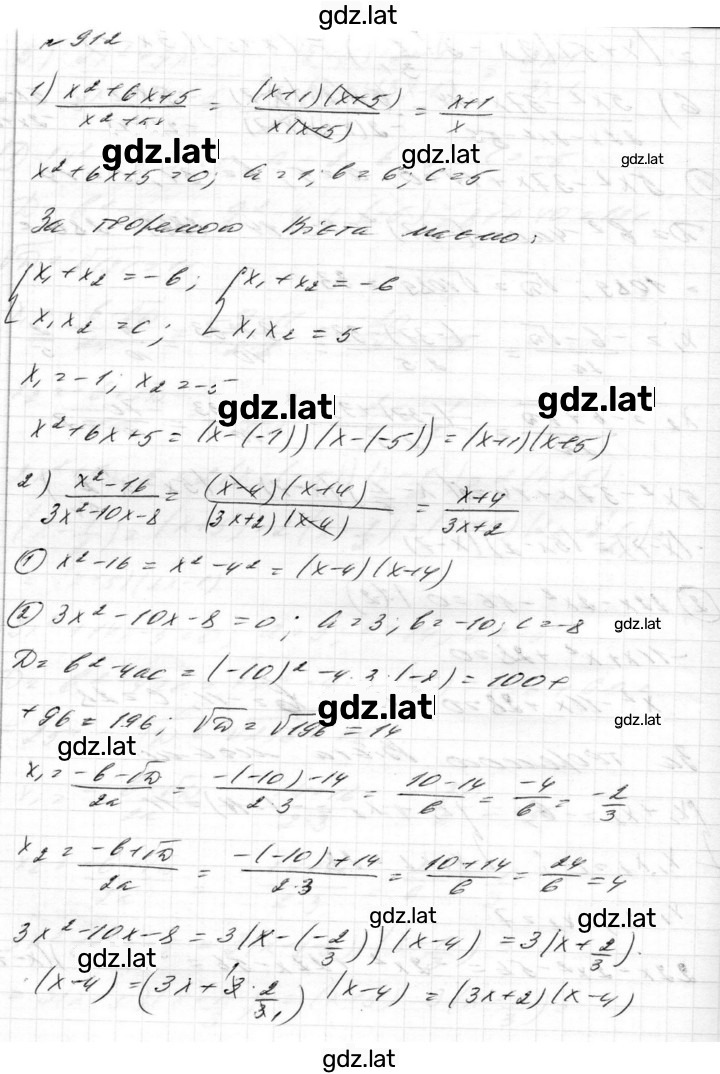 gdz.lat
№ 912
1) \frac{x²+6x+5}{x²+5x} = \frac{(x+1)(x+5)}{x(x+5)} = \frac{x+1}{x}
gdz.lat gdz.lat gdz.lat
x²+6x+5=0; a=1; b=6; c=5
За теоремою Вієта маємо:
{x₁+x₂=-b; {x₁+x₂=-6
{x₁x₂=c; {x₁x₂=5
x₁=-1; x₂=-5
gdz.lat gdz.lat
x²+6x+5=(x-(-1))(x-(-5))=(x+1)(x+5)
2) \frac{x²-16}{3x²-10x-8} = \frac{(x-4)(x+4)}{(3x+2)(x-4)} = \frac{x+4}{3x+2}
① x²-16=x²-4²=(x-4)(x+4)
② 3x²-10x-8=0; a=3; b=-10; c=-8 gdz.lat
D=b²-4ac=(-10)²-4·3·(-8)=100+
gdz.lat gdz.lat
+96=196; √D=√196=14
gdz.lat
x₁=\frac{-b-√D}{2a} = \frac{-(-10)-14}{2·3} = \frac{10-14}{6} = \frac{-4}{6} = -\frac{2}{3}
x₂=\frac{-b+√D}{2a} = \frac{-(-10)+14}{2·3} = \frac{10+14}{6} = \frac{24}{6} = 4
gdz.lat gdz.lat
3x²-10x-8=3(x-(-\frac{2}{3}))(x-4)=3(x+\frac{2}{3})·
gdz.lat
·(x-4)=(3x+3·\frac{2}{3})(x-4)=(3x+2)(x-4)
gdz.lat